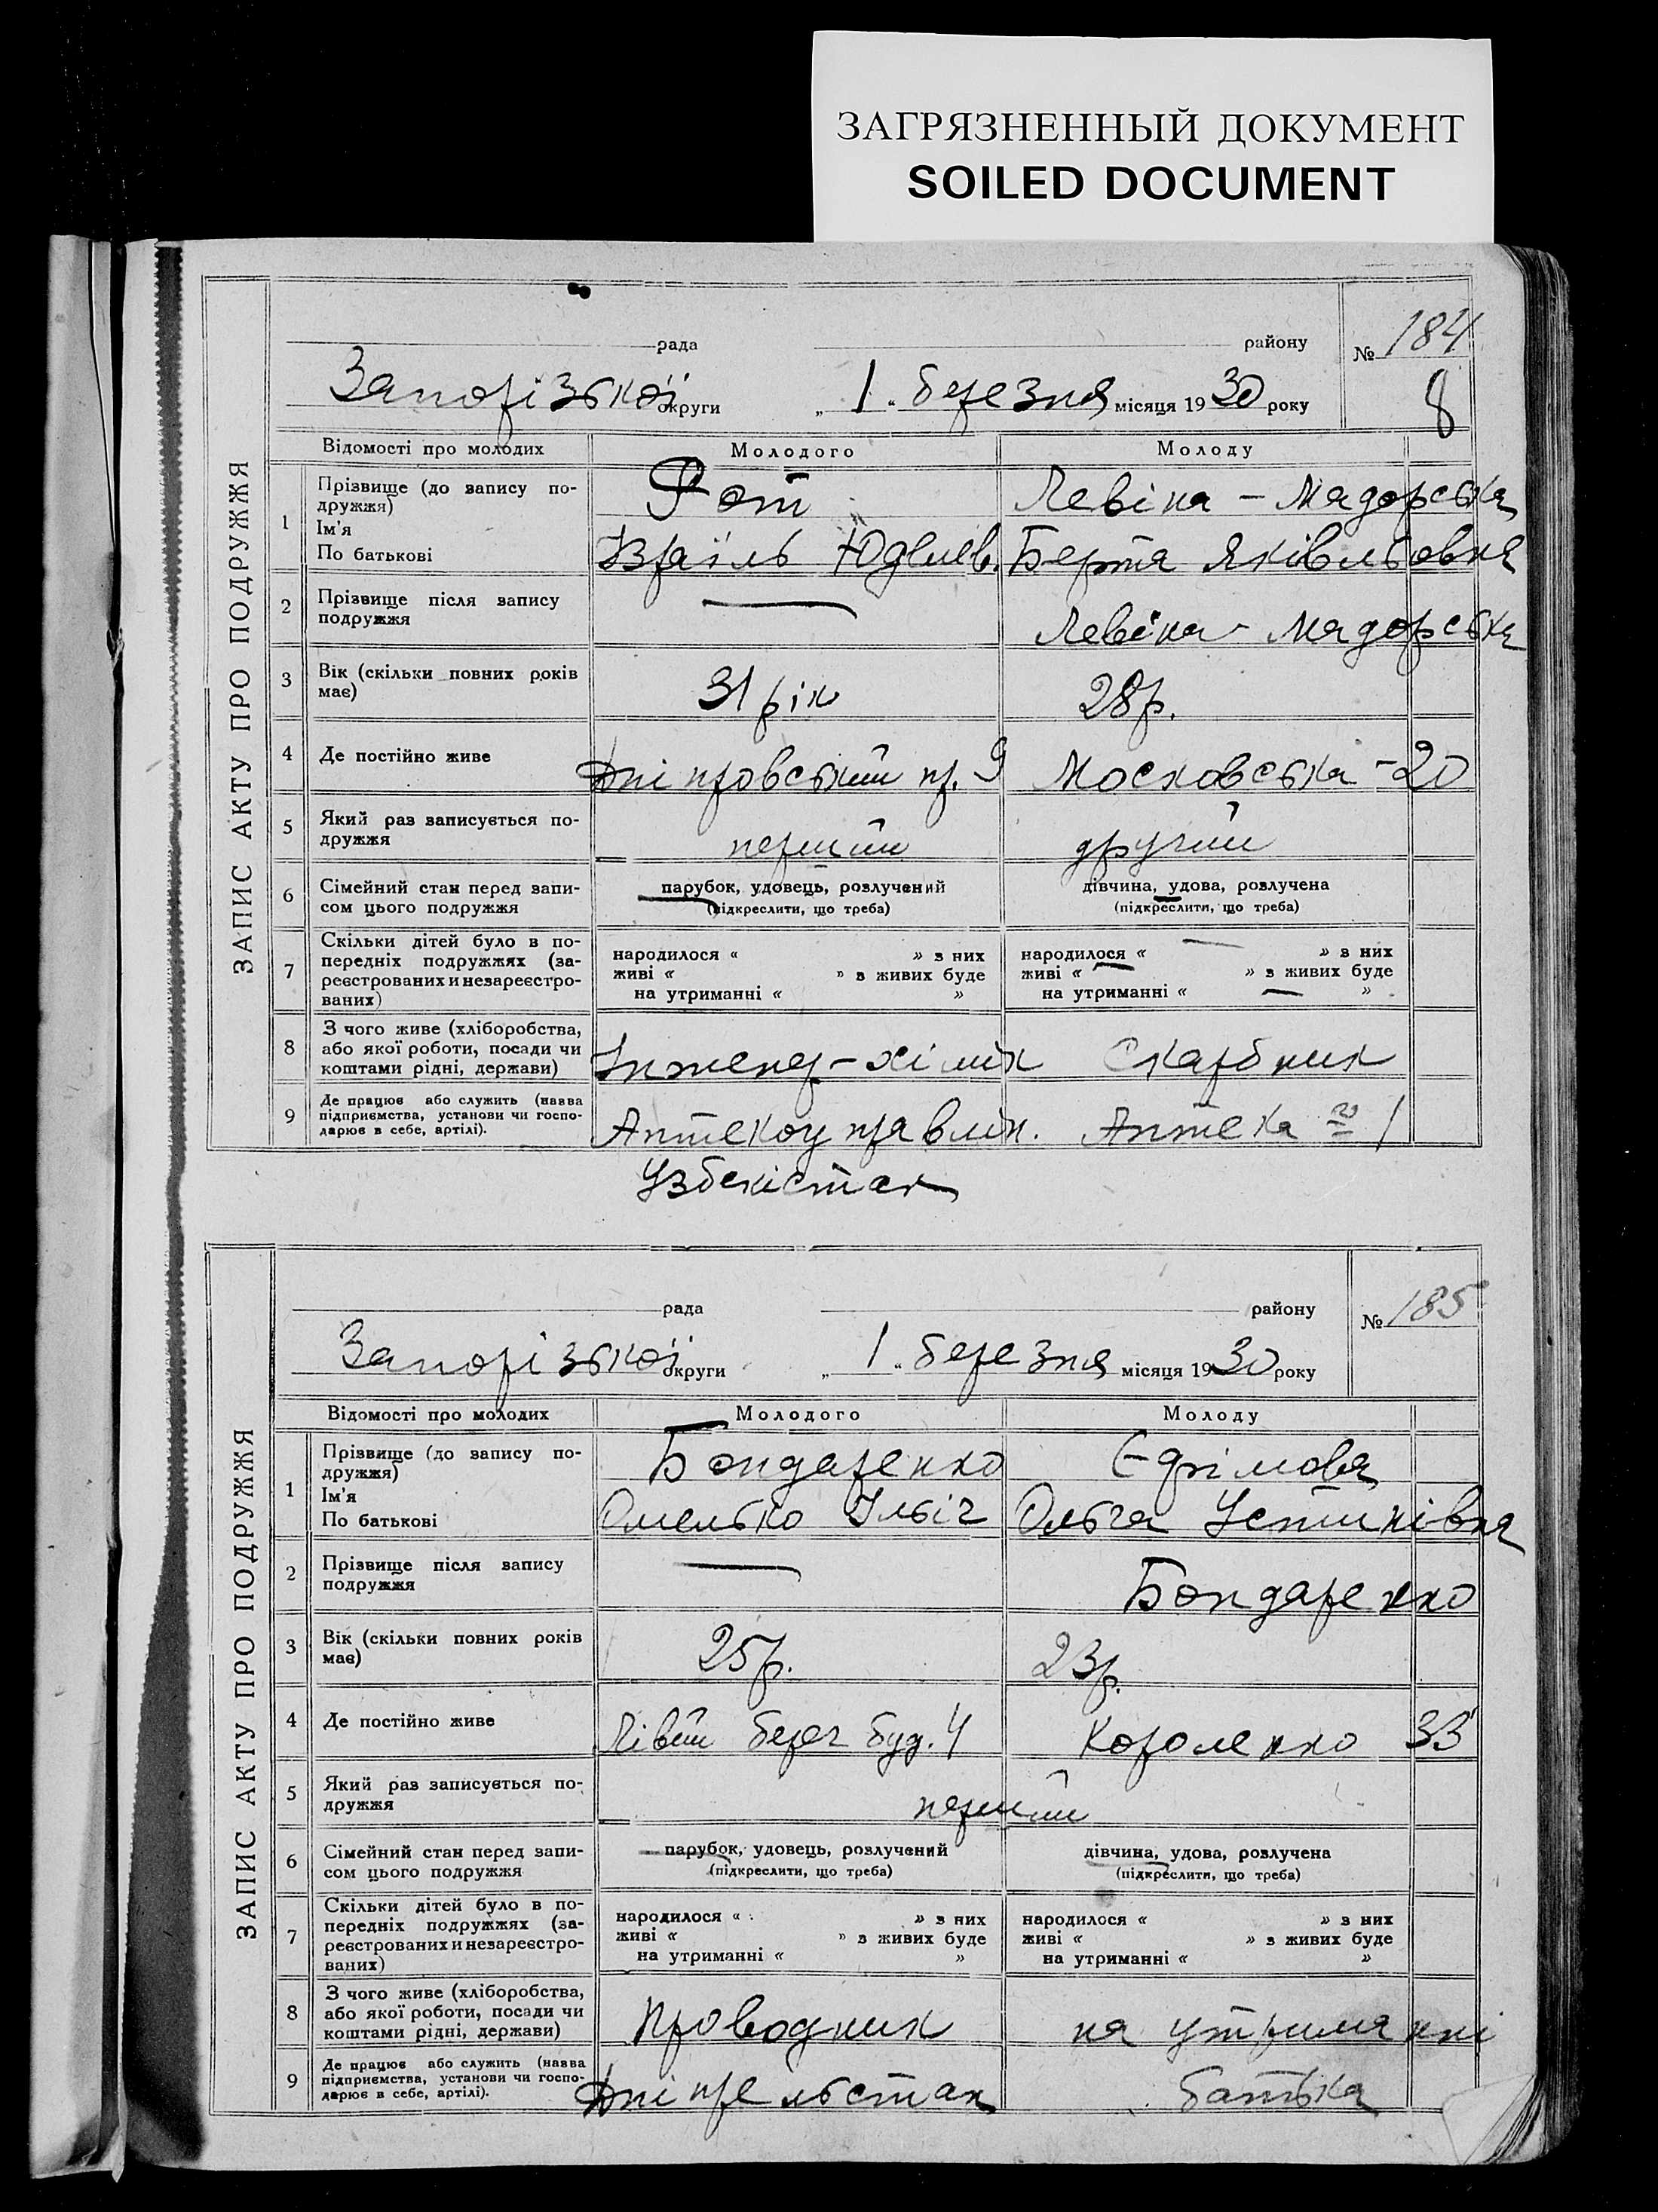 ЗАГРЯЗНЕННЫЙ ДОКУМЕНТ
SOILED DOCUMENT
ЗАПИС АКТУ ПРО ПОДРУЖЖЯ
рада району № 184
Запорізької округи „ 1 “ березня місяця 1930 року 8
Відомості про молодих Молодого Молоду
1 Прізвище (до запису по-
дружжя) Рот Левіна - Мадорська
Ім'я
По батькові Ізраїль Юдвиев. Берта Яківльовна
2 Прізвище після запису
подружжя — Левіна - Мадорська
3 Вік (скільки повних років
має) 31 рік 28р.
4 Де постійно живе Дніпровський пр. 9 Московська - 20
5 Який раз записується по-
дружжя перший другий
6 Сімейний стан перед запи-
сом цього подружжя парубок, удовець, розлучений дівчина, удова, розлучена
(підкреслити, що треба) (підкреслити, що треба)
7 Скільки дітей було в по-
передніх подружжях (за-
реєстрованих и незареєстро-
ваних)
народилося « » з них народилося « — » з них
живі « » з живих буде живі « — » з живих буде
на утриманні « » на утриманні « — »
8 З чого живе (хліборобства,
або якої роботи, посади чи
коштами рідні, держави) Інженер-хімик Скарбник
9 Де працює або служить (назва
підприємства, установи чи госпо-
дарює в себе, артілі). Аптекоуправлін. Аптека № 1
Узбекістан
ЗАПИС АКТУ ПРО ПОДРУЖЖЯ
рада району № 185
Запорізької округи „ 1 “ березня місяця 1930 року
Відомості про молодих Молодого Молоду
1 Прізвище (до запису по-
дружжя) Бондаренко Єфімова
Ім'я
По батькові Омелько Ільіч Ольга Устинівна
2 Прізвище після запису
подружжя — Бондаренко
3 Вік (скільки повних років
має) 25р. 23р.
4 Де постійно живе Лівий берег буд. 4 Короленко 33
5 Який раз записується по-
дружжя перший
6 Сімейний стан перед запи-
сом цього подружжя парубок, удовець, розлучений дівчина, удова, розлучена
(підкреслити, що треба) (підкреслити, що треба)
7 Скільки дітей було в по-
передніх подружжях (за-
реєстрованих и незареєстро-
ваних)
народилося « » з них народилося « » з них
живі « » з живих буде живі « » з живих буде
на утриманні « » на утриманні « »
8 З чого живе (хліборобства,
або якої роботи, посади чи
коштами рідні, держави) проводник на утриманні
9 Де працює або служить (назва
підприємства, установи чи госпо-
дарює в себе, артілі). Дніпрельстан батька